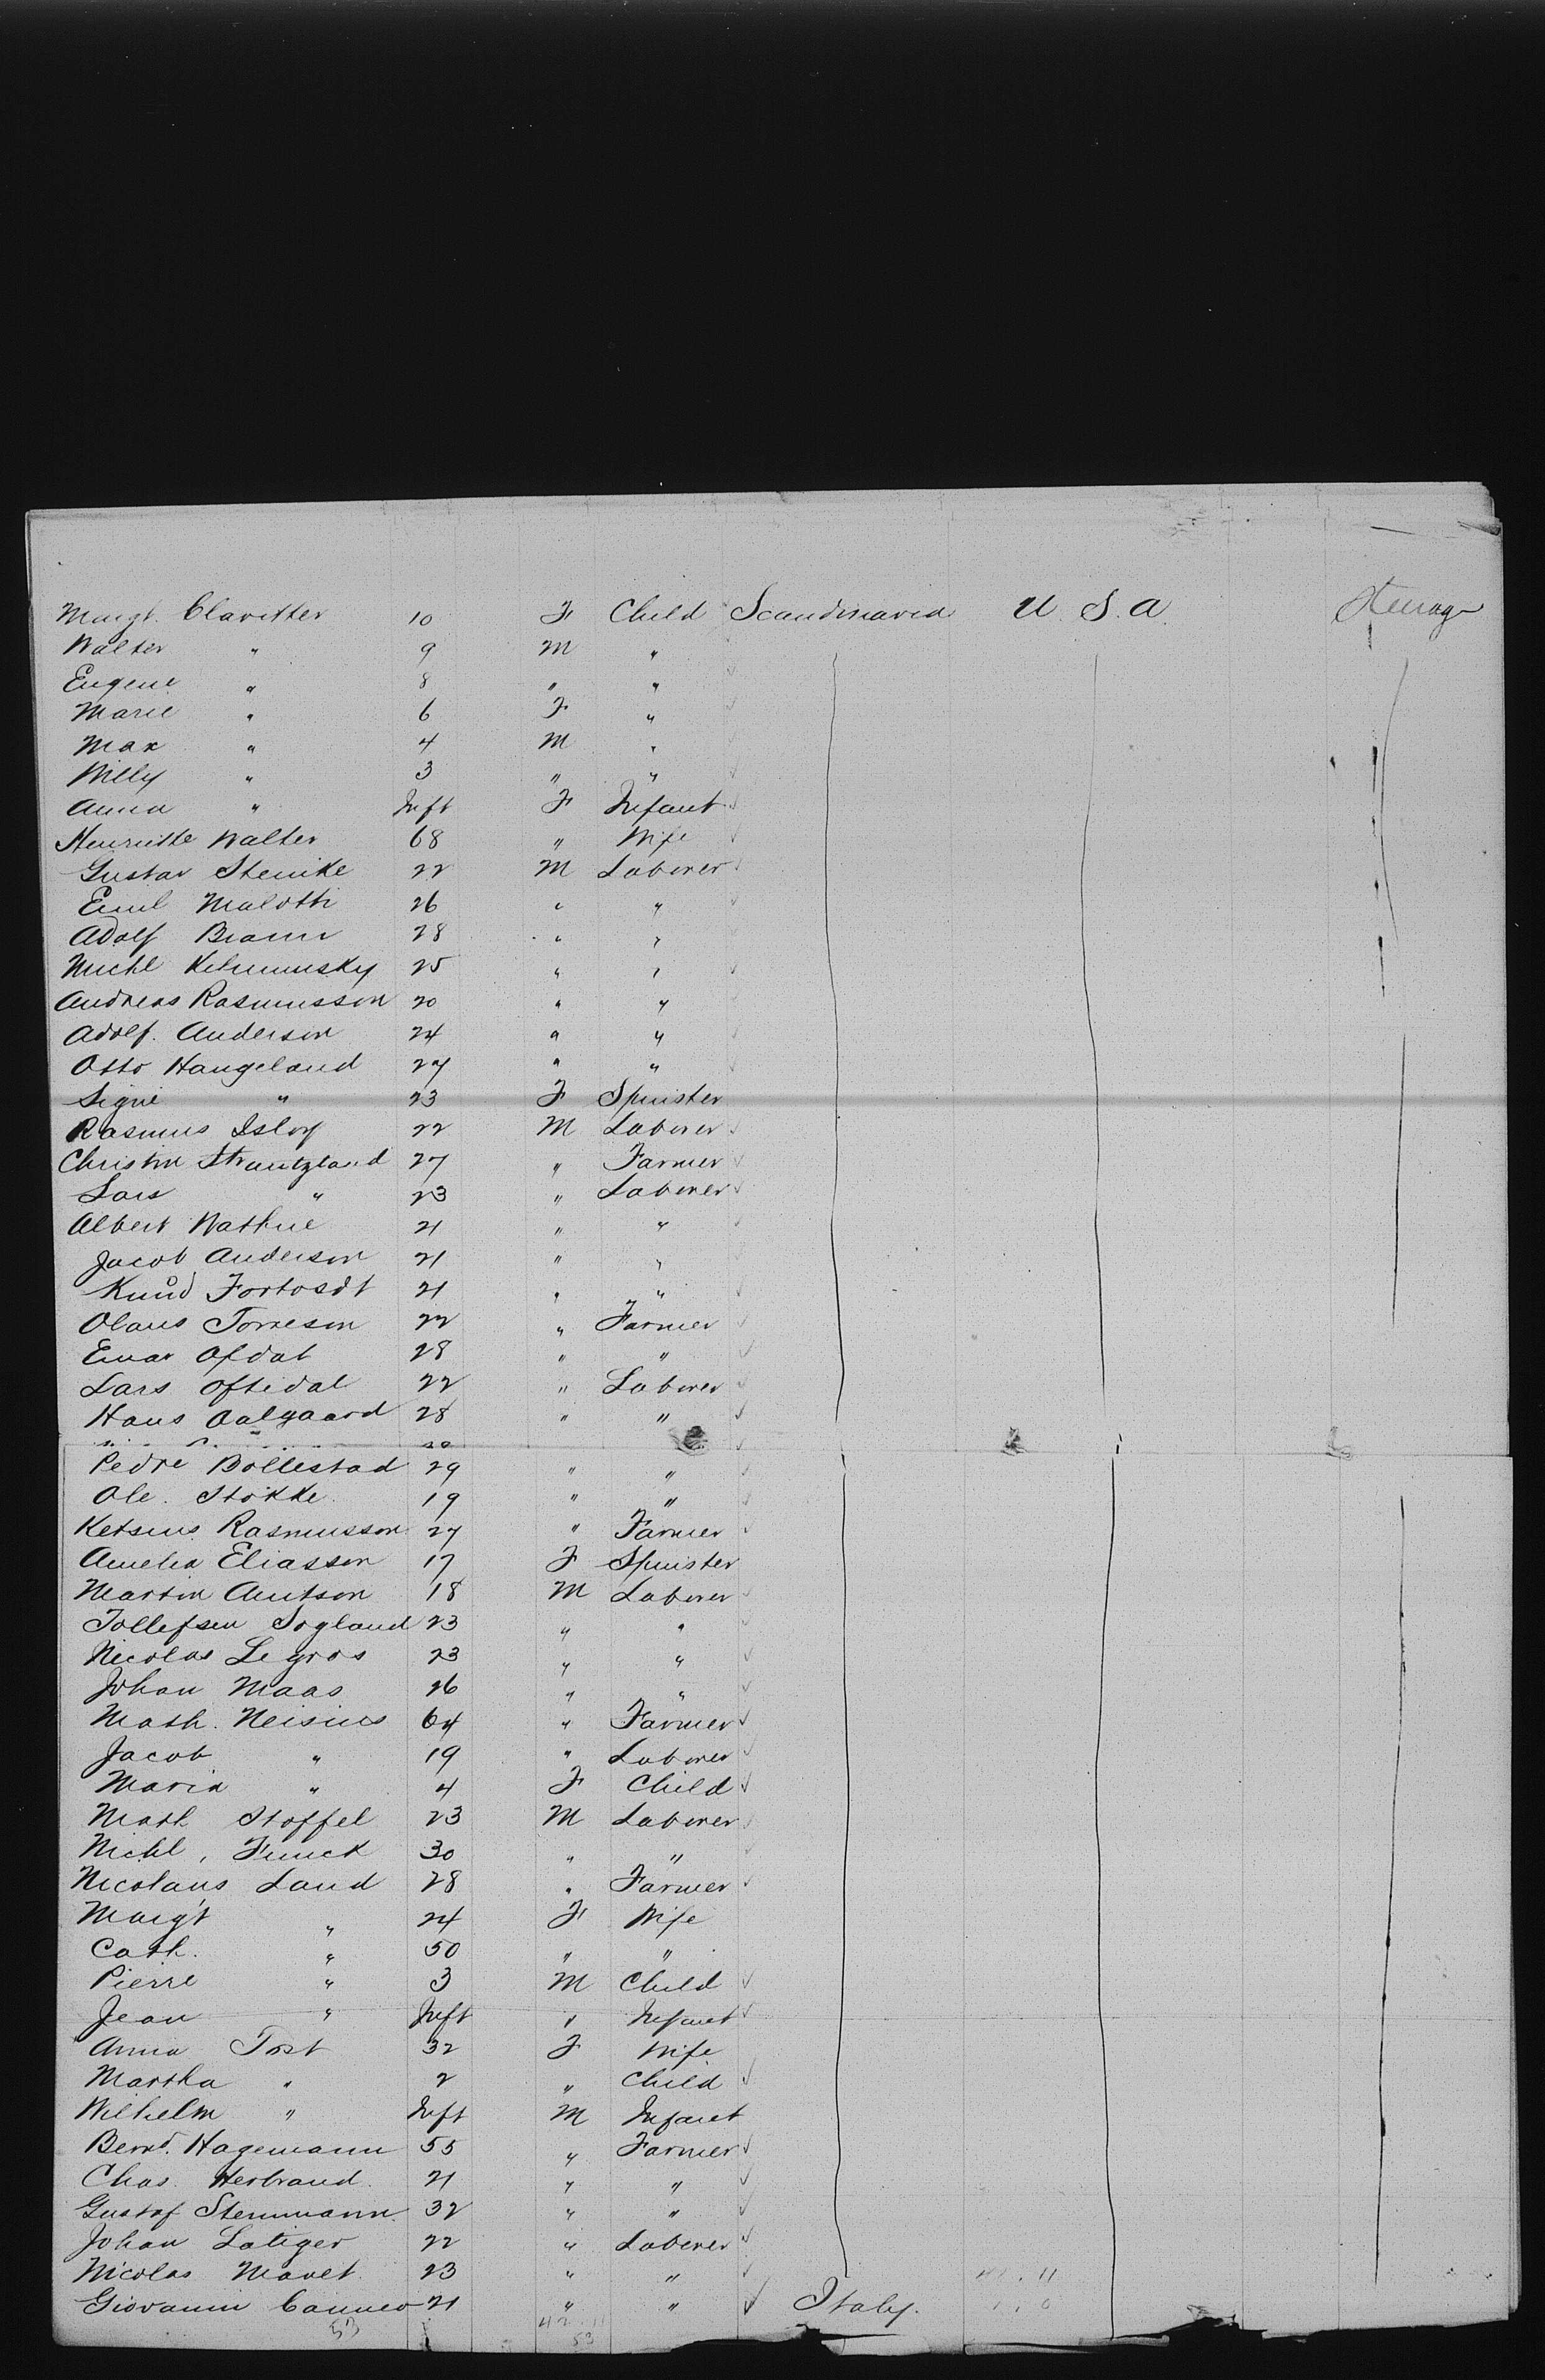 Margt. Clavitter 10 F Child Scandinavia U. S. A. Steerage
Walter " 9 M "
Eugene " 8 " "
Marie " 6 F "
Max " 4 M "
Willy " 3 " "
Anna " Inft F Infant
Henriette Walter 68 " Wife
Gustav Steinke 22 M Laborer
Emil Malotti 26 " "
Adolf Braun 28 " "
Michl 25 " "
Andreas Rasmusson 20 " "
Adolf. Anderson 24 " "
Otto Haugeland 27 " "
Signe " 23 F Spinster
Rasmus 22 M Laborer
Christin 27 " Farmer
Lars " 23 " Laborer
Albert Wathne 21 " "
Jacob Anderson 21 " "
Knud 21 " "
Olaus 22 " Farmer
Einar 28 " "
Lars Oftedal 22 " Laborer
Hans Aalgaard 28 " "
Pedre Bollestad 29 " "
Ole. Stokke. 19 " "
Rasmusson 27 " Farmer
Amelia Eliasson 17 F Spinster
Martin 18 M Laborer
Tollefsen Sogland 23 " "
Nicolas Legros 23 " "
Johan Maas 26 " "
Math. Neisius 64 " Farmer
Jacob " 19 " Laborer
Maria " 4 F Child
Math Stoffel 23 M Laborer
Michl. Funck 30 " "
Nicolaus Laud 28 " Farmer
Margt " 24 F Wife
Cath. " 50 " "
Pierre " 3 M Child
Jean " Inft " Infant
Anna Tost 32 F Wife
Martha " 2 " Child
Wilhelm " Inft M Infant
Bernd. Hagemann 55 " Farmer
Chas. Herbrand. 21 " "
Gustaf Stemmann. 32 " "
Johan Latiger 22 " Laborer
Nicolas Manet. 23 " "
Giovanni 21 " " Italy.
53 42 11
53